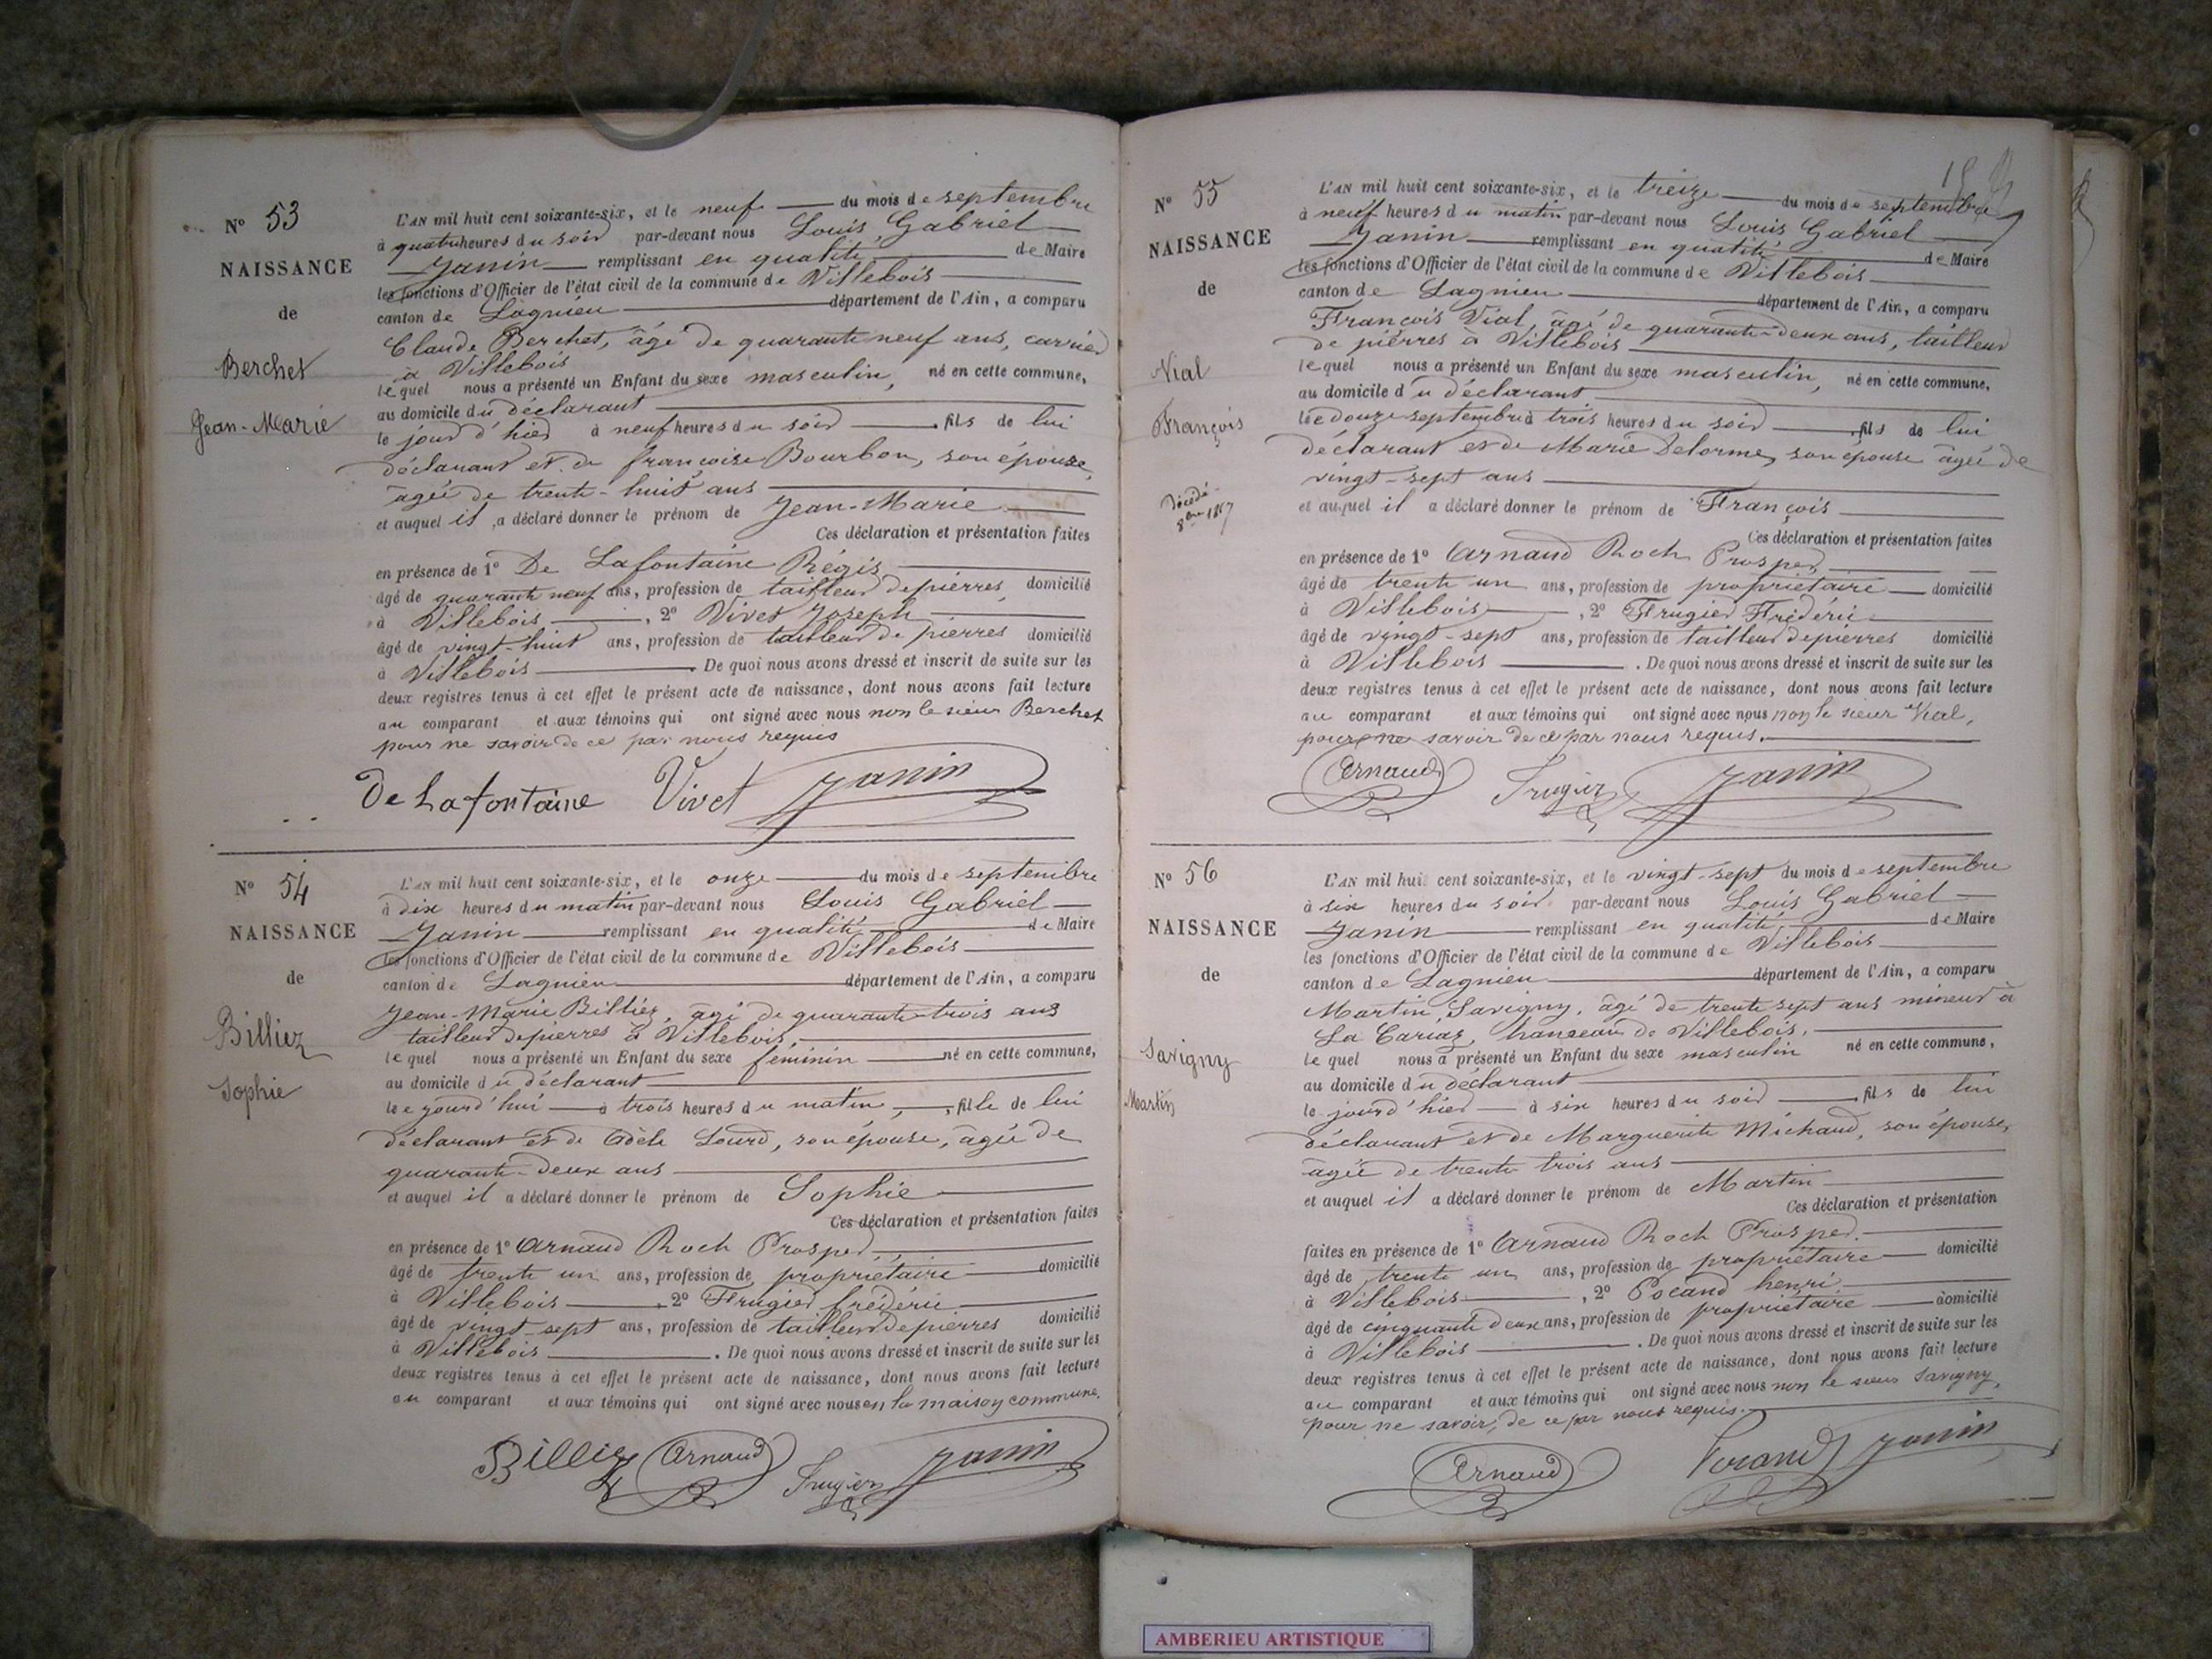 N° 53
NAISSANCE
de
Berchet
Jean-Marie
L'AN mil huit cent soixante-six, et le neuf du mois de septembre
à quatre heures du soir par-devant nous Louis Gabriel
Janin remplissant en qualité de Maire
les fonctions d'Officier de l'état civil de la commune de Villebois
canton de Lagnieu département de l'Ain, a comparu
Claude Berchet, âgé de quarante neuf ans, carrier
à Villebois
lequel nous a présenté un Enfant du sexe masculin, né en cette commune,
au domicile du déclarant
le jour d'hier à neuf heures du soir fils de lui
déclarant et de françoise Bourbon, son épouse,
âgée de trente-huit ans
et auquel il a déclaré donner le prénom de Jean-Marie
Ces déclaration et présentation faites
en présence de 1° De Lafontaine Régis
âgé de quarante neuf ans, profession de tailleur de pierres, domicilié
à Villebois, 2° Vivet Joseph
âgé de vingt-huit ans, profession de tailleur de pierres domicilié
à Villebois. De quoi nous avons dressé et inscrit de suite sur les
deux registres tenus à cet effet le présent acte de naissance, dont nous avons fait lecture
au comparant et aux témoins qui ont signé avec nous non le sieur Berchet
pour ne savoir de ce par nous requis
De Lafontaine Vivet Janin
N° 54
NAISSANCE
de
Billiez
Sophie
L'AN mil huit cent soixante-six, et le onze du mois de septembre
à dix heures du matin par-devant nous Louis Gabriel
Janin remplissant en qualité de Maire
les fonctions d'Officier de l'état civil de la commune de Villebois
canton de Lagnieu département de l'Ain, a comparu
Jean-Marie Billiez, âgé de quarante-trois ans
tailleur de pierres à Villebois,
lequel nous a présenté un Enfant du sexe féminin né en cette commune,
au domicile du déclarant
le jourd'hui à trois heures du matin, fille de lui
déclarant et de Adèle Lourd, son épouse, âgée de
quarante-deux ans
et auquel il a déclaré donner le prénom de Sophie
Ces déclaration et présentation faites
en présence de 1° Arnaud Roch Prosper
âgé de trente un ans, profession de propriétaire domicilié
à Villebois, 2° Frugier frédéric
âgé de vingt-sept ans, profession de tailleur de pierres domicilié
à Villebois. De quoi nous avons dressé et inscrit de suite sur les
deux registres tenus à cet effet le présent acte de naissance, dont nous avons fait lecture
au comparant et aux témoins qui ont signé avec nous en la maison commune.
Billiez Arnaud Frugier Janin
N° 55
NAISSANCE
de
Vial
François
Décédé
8bre 1867
L'AN mil huit cent soixante-six, et le treize du mois de septembre
à neuf heures du matin par-devant nous Louis Gabriel
Janin remplissant en qualité de Maire
les fonctions d'Officier de l'état civil de la commune de Villebois
canton de Lagnieu département de l'Ain, a comparu
François Vial âgé de quarante-deux ans, tailleur
de pierres à Villebois
lequel nous a présenté un Enfant du sexe masculin, né en cette commune,
au domicile du déclarant
le douze septembre à trois heures du soir fils de lui
déclarant et de Marie Delorme, son épouse âgée de
vingt-sept ans
et auquel il a déclaré donner le prénom de François
Ces déclaration et présentation faites
en présence de 1° Arnaud Roch Prosper
âgé de trente un ans, profession de propriétaire domicilié
à Villebois, 2° Frugier Frédéric
âgé de vingt-sept ans, profession de tailleur de pierres domicilié
à Villebois. De quoi nous avons dressé et inscrit de suite sur les
deux registres tenus à cet effet le présent acte de naissance, dont nous avons fait lecture
au comparant et aux témoins qui ont signé avec nous non le sieur Vial,
pour ne savoir de ce par nous requis.
Arnaud Frugier Janin
N° 56
NAISSANCE
de
Savigny
Martin
L'AN mil huit cent soixante-six, et le vingt-sept du mois de septembre
à six heures du soir par-devant nous Louis Gabriel
Janin remplissant en qualité de Maire
les fonctions d'Officier de l'état civil de la commune de Villebois
canton de Lagnieu département de l'Ain, a comparu
Martin Savigny, âgé de trente sept ans mineur à
La Cariaz, hameau de Villebois,
lequel nous a présenté un Enfant du sexe masculin né en cette commune,
au domicile du déclarant
le jourd'hier à six heures du soir fils de lui
déclarant et de Marguerite Michaud, son épouse,
âgée de trente trois ans
et auquel il a déclaré donner le prénom de Martin
Ces déclaration et présentation
faites en présence de 1° Arnaud Roch Prosper
âgé de trente un ans, profession de propriétaire domicilié
à Villebois, 2° Pocand henri
âgé de cinquante deux ans, profession de propriétaire domicilié
à Villebois. De quoi nous avons dressé et inscrit de suite sur les
deux registres tenus à cet effet le présent acte de naissance, dont nous avons fait lecture
au comparant et aux témoins qui ont signé avec nous non le sieur Savigny,
pour ne savoir, de ce par nous requis.
Arnaud Pocand Janin
AMBERIEU ARTISTIQUE